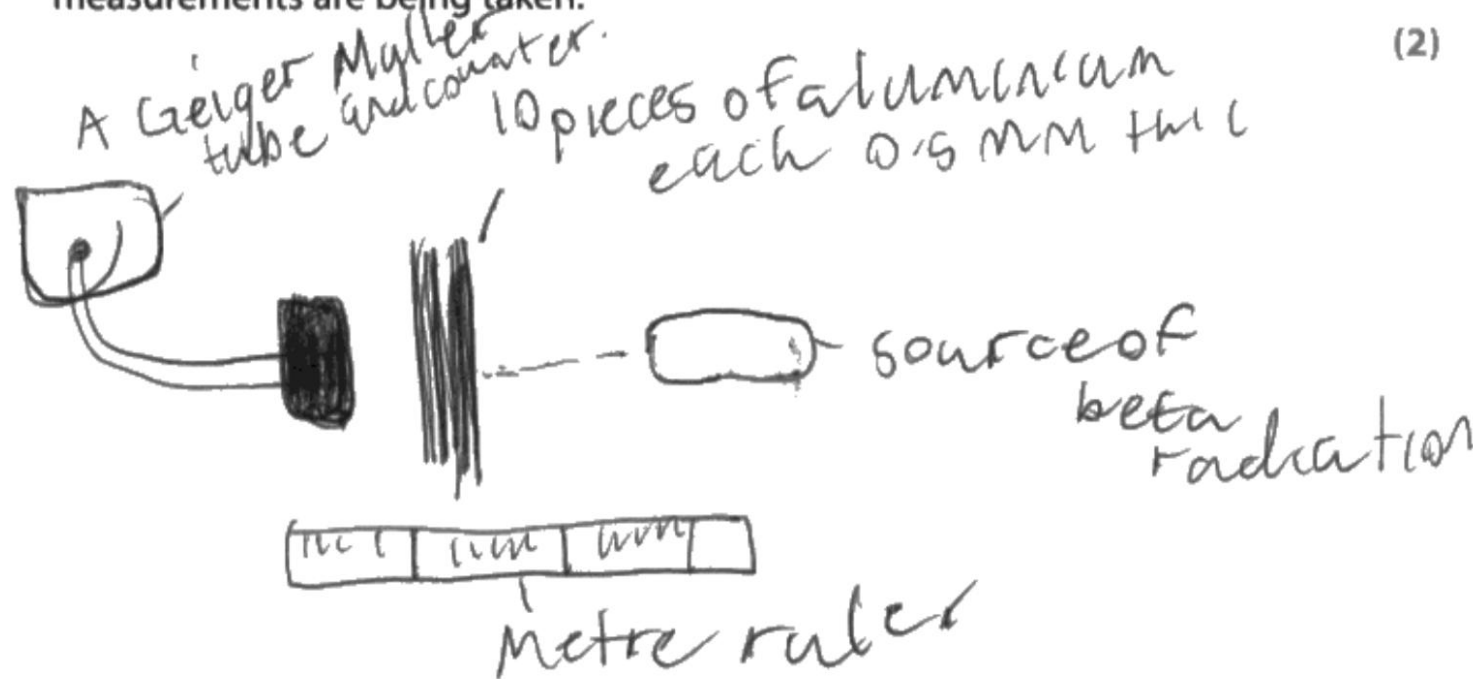 measurements are being taken.
(2)
A Geiger Muller
tube and counter.
10 pieces of aluminium
each 0.5 MM
source of
beta
radiation
Metre ruler